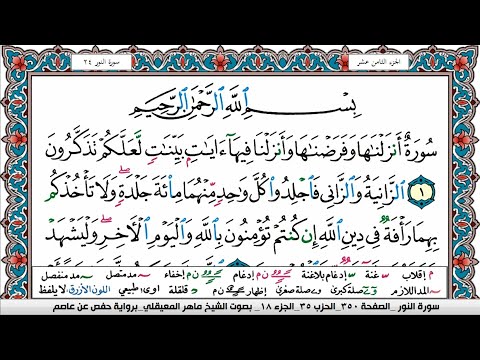 الجزء الثامن عشر
سورة النور ٢٤
بِسْمِ اللَّهِ الرَّحْمَٰنِ الرَّحِيمِ
سُورَةٌ أَنزَلْنَٰهَا وَفَرَضْنَٰهَا وَأَنزَلْنَا فِيهَآ ءَايَٰتِۭ بَيِّنَٰتٍ لَّعَلَّكُمْ تَذَكَّرُونَ
١ ٱلزَّانِيَةُ وَٱلزَّانِي فَٱجْلِدُوا۟ كُلَّ وَٰحِدٍ مِّنْهُمَا مِا۟ئَةَ جَلْدَةٍ ۖ وَلَا تَأْخُذْكُم
بِهِمَا رَأْفَةٌ فِي دِينِ ٱللَّهِ إِن كُنتُمْ تُؤْمِنُونَ بِٱللَّهِ وَٱلْيَوْمِ ٱلْأَخِرِ ۖ وَلْيَشْهَدْ
م إقلاب ـ غنة ـ إدغام بلاغنة ن م إدغام ـ إخفاء ~ مد متصل ~ مد منفصل
~ المد اللازم ـ صلة كبرى ـ صلة صغرى ـ إظهار ن م ـ قلقلة اوى طبيعي اللون الأزرق لا يلفظ
سورة النور _ الصفحة ٣٥٠_ الحزب ٣٥_ الجزء ١٨_ بصوت الشيخ ماهر المعيقلي_ برواية حفص عن عاصم